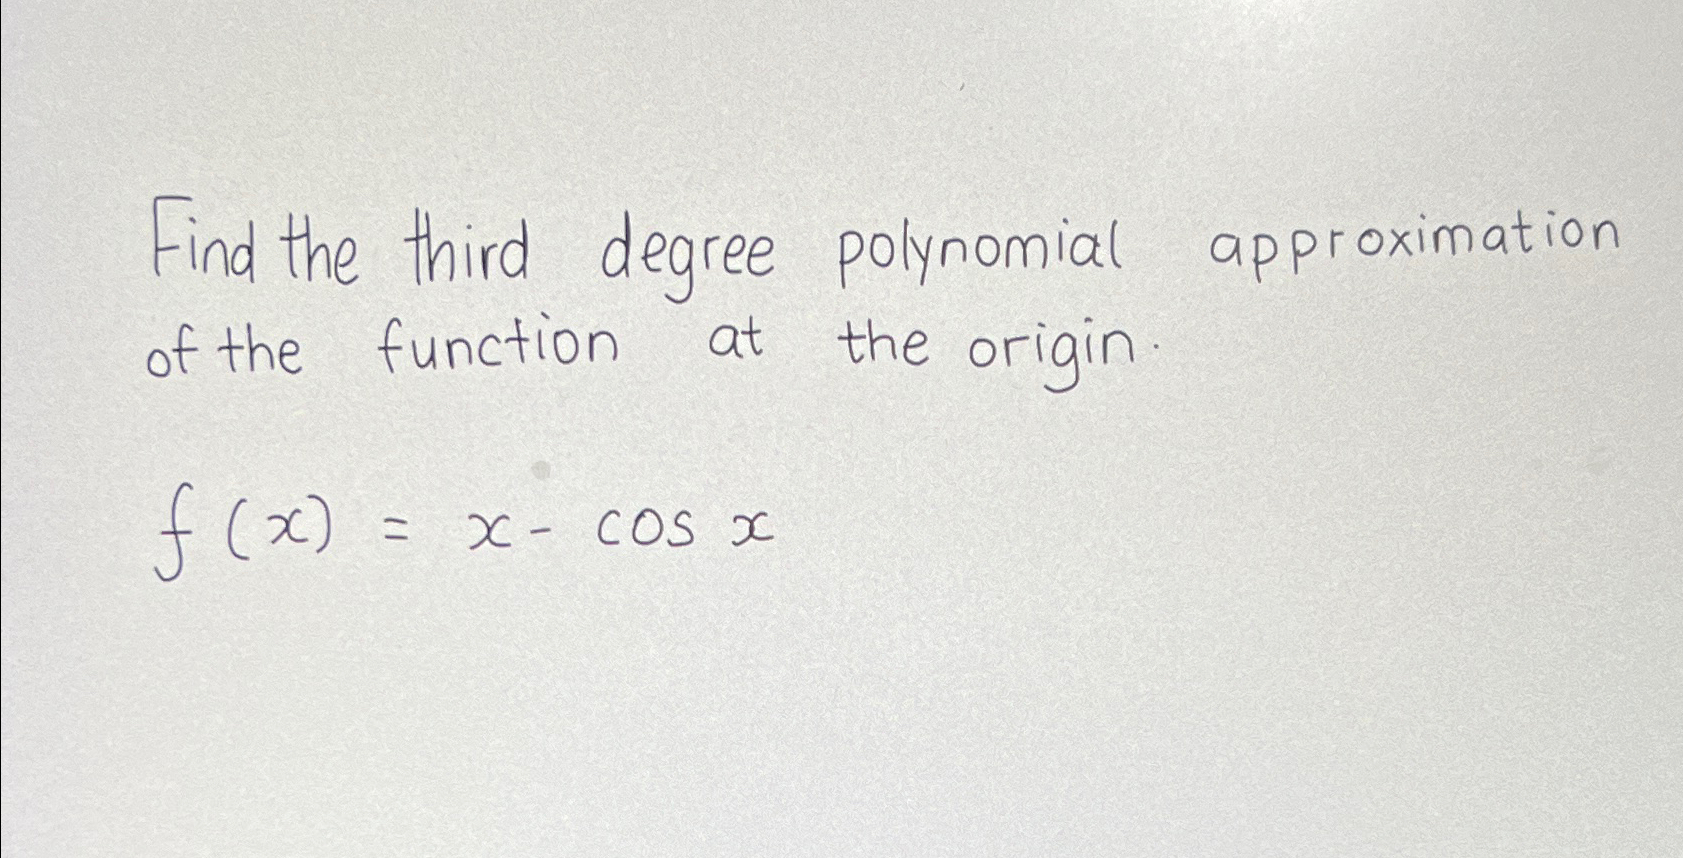 Find the third degree polynomial approximation
of the function at the origin.
f(x) = x - cos x